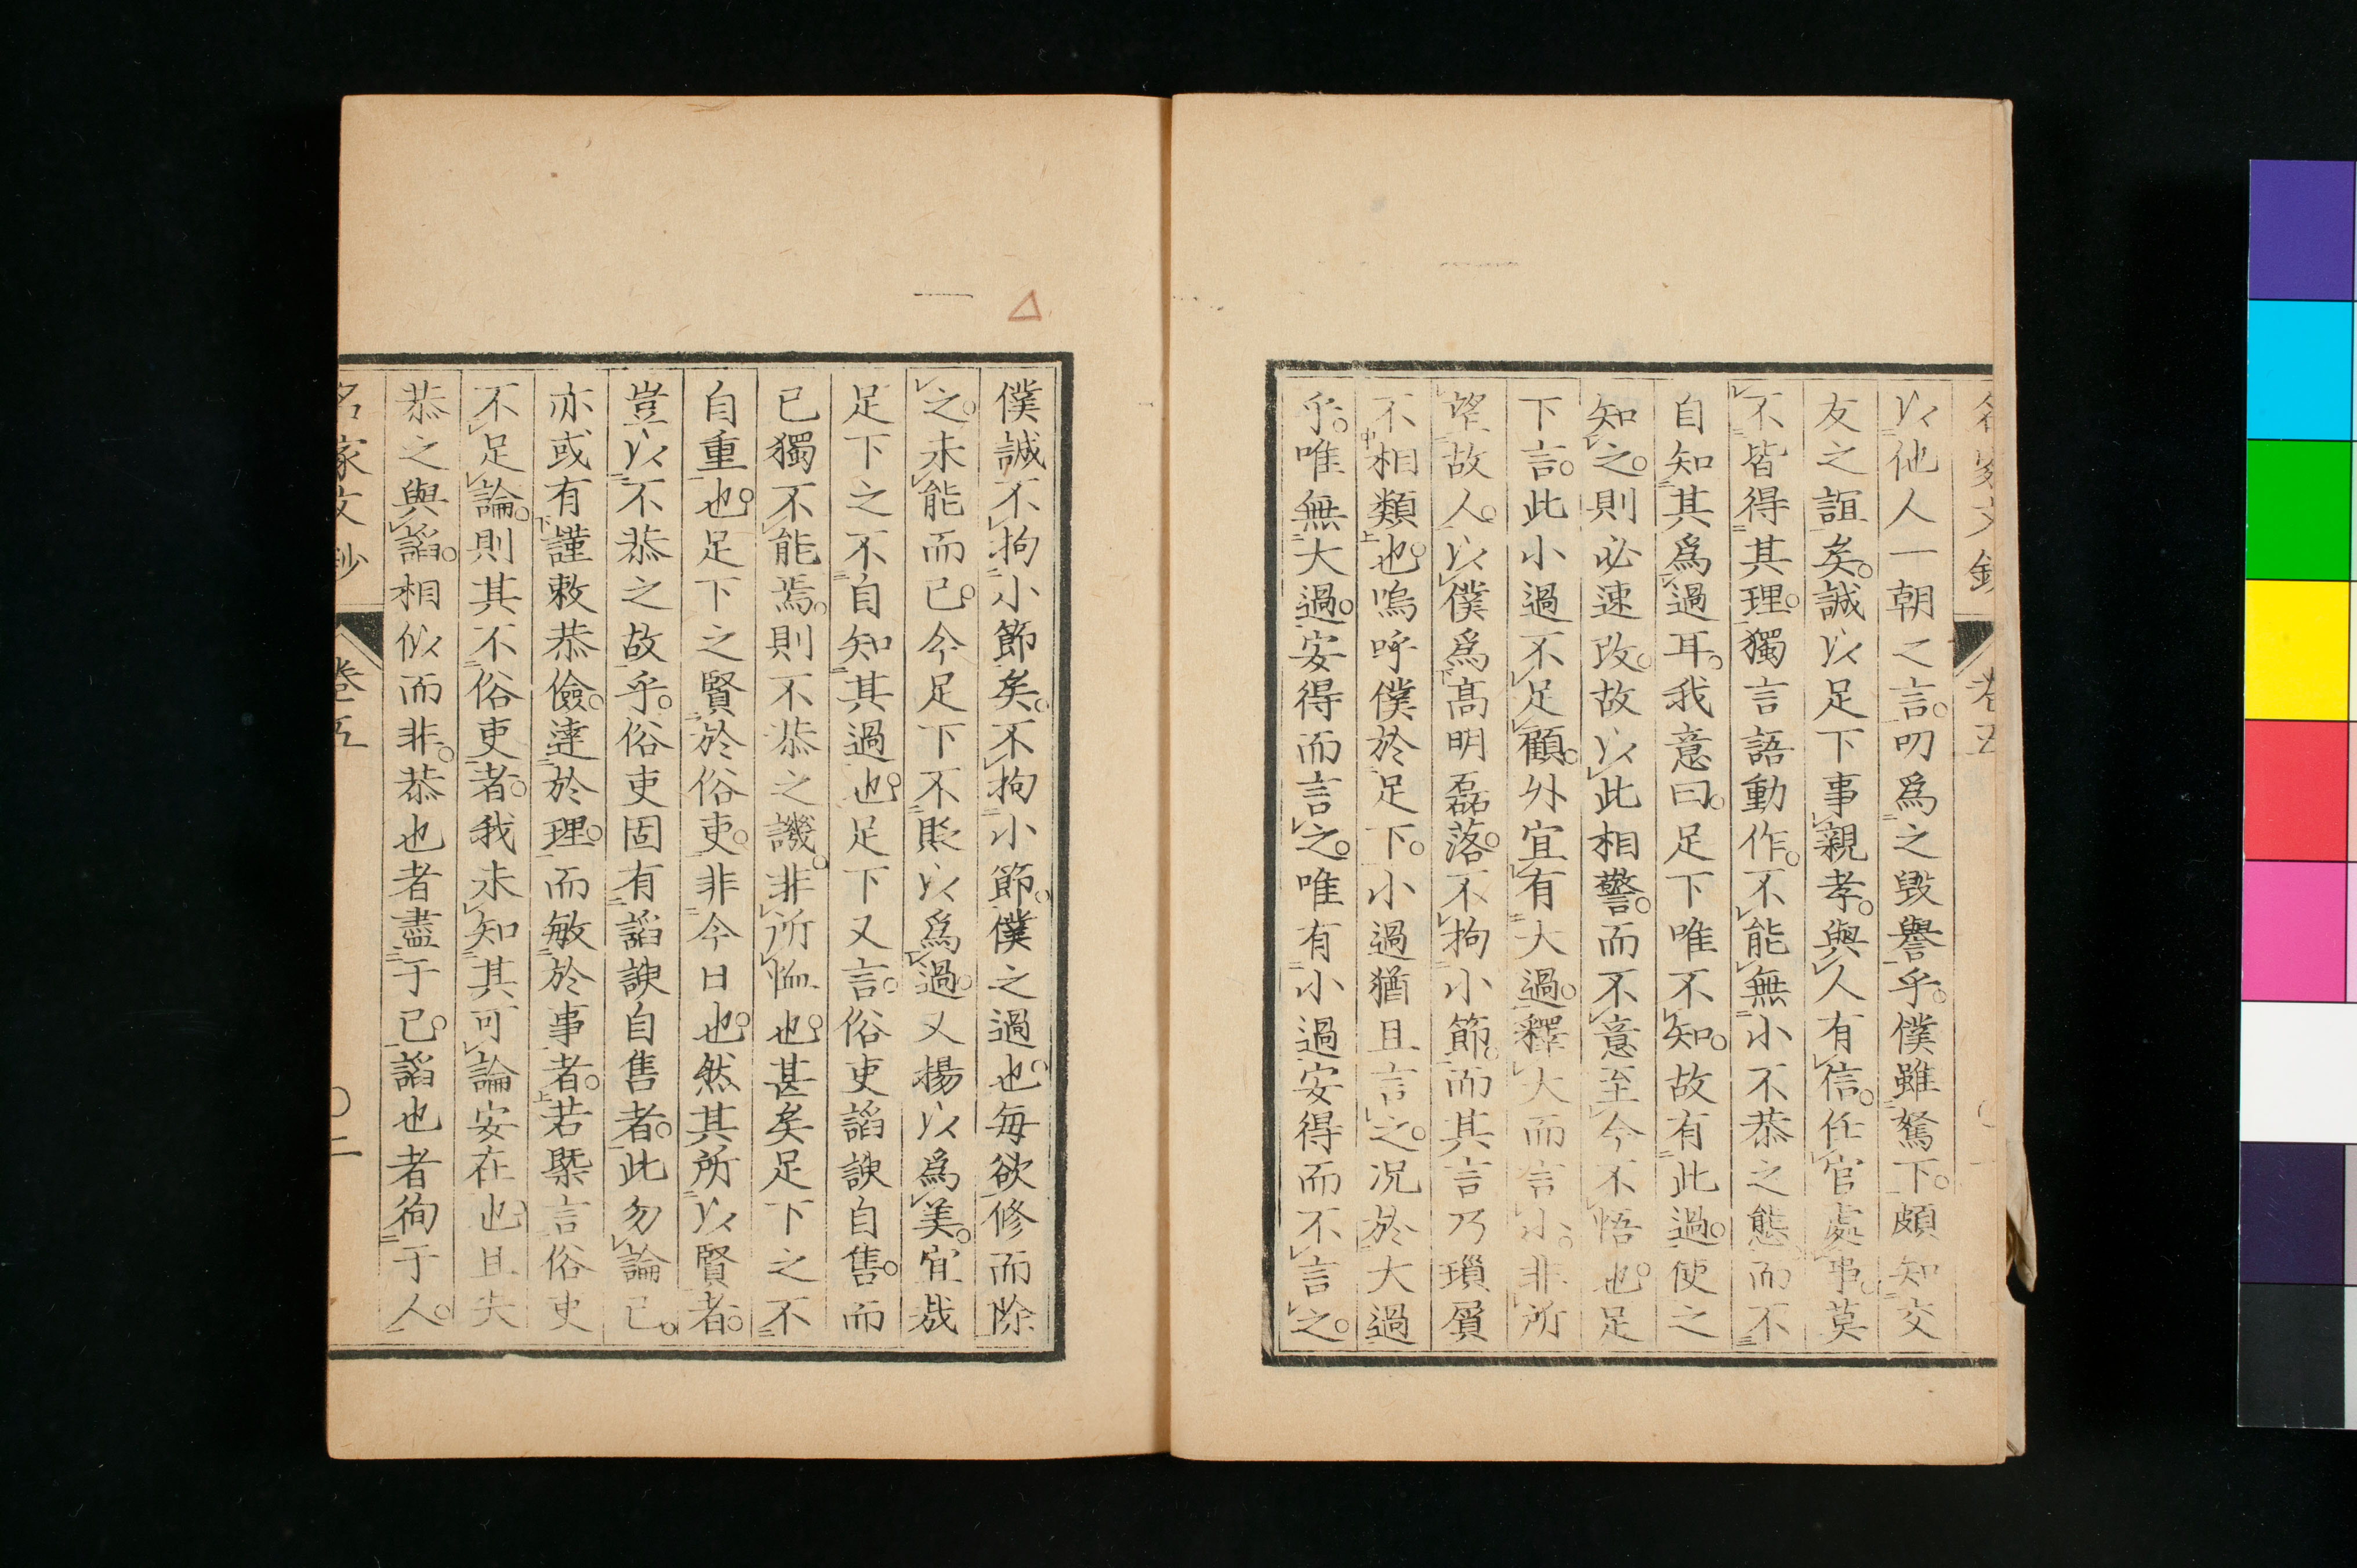 名家文鈔 卷五
以他人一朝之言。叨爲之毀譽乎。僕雖駑下。頗知交
友之誼矣。誠以足下事親孝。與人有信。任官處事。莫
不皆得其理。獨言語動作。不能無小不恭之態而不
自知其爲過耳。我意曰。足下唯不知。故有此過。使之
知之。則必速改。故以此相警。而不意至今不悟也。足
下言。此小過不足顧。外宜有大過。釋大而言小。非所
望故人。以僕爲高明磊落。不拘小節。而其言乃瑣屑
不相類也。嗚呼僕於足下。小過猶且言之。况於大過
乎。唯無大過。安得而言之。唯有小過安得而不言之。
僕誠不拘小節矣。不拘小節。僕之過也。每欲修而除
之。未能而已。今足下不貶以爲過。又揚以爲美。宜哉
足下之不自知其過也。足下又言。俗吏諂諛自售。而
已獨不能焉。則不恭之譏。非所恤也。甚矣足下之不
自重也。足下之賢於俗吏。非今日也。然其所以賢者。
豈以不恭之故乎。俗吏固有諂諛自售者。此勿論已。
亦或有謹敕恭儉。達於理。而敏於事者。若槩言俗吏
不足論。則其不俗吏者。我未知其可論安在也。且夫
恭之與諂。相似而非。恭也者盡于己。諂也者徇于人。
名家文鈔 卷五 〇二